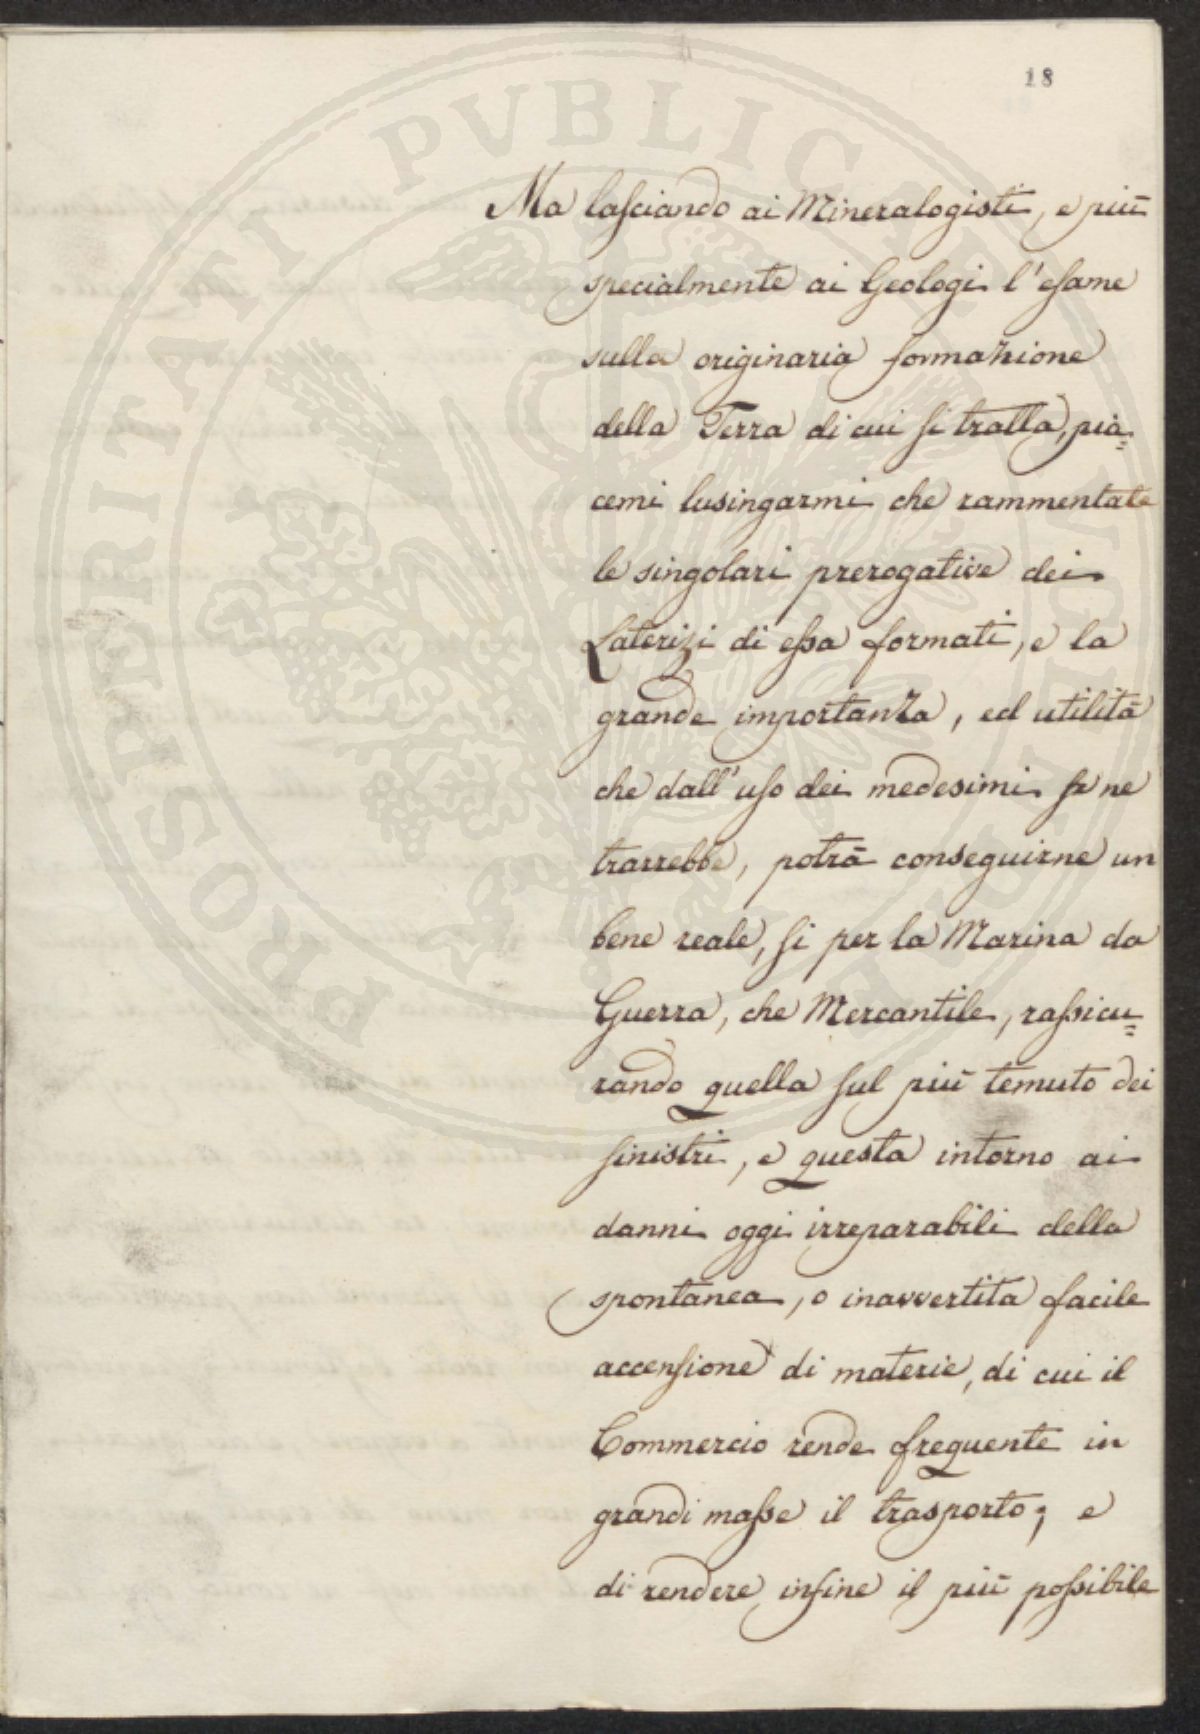 18
PROSPERITATI PUBLICAE AUGENDAE
Ma lasciando ai Mineralogisti, e più
specialmente ai Geologi l'esame
sulla originaria formazione
della Terra di cui si tratta, pia=
cemi lusingarmi che rammentate
le singolari prerogative dei
Laterizi di essa formati, e la
grande importanza, ed utilità
che dall'uso dei medesimi se ne
trarrebbe, potrà conseguirne un
bene reale, si per la Marina da
Guerra, che Mercantile, rassicu=
rando quella sul più temuto dei
sinistri, e questa intorno ai
danni oggi irreparabili della
spontanea, o inavvertita facile
accensione di materie, di cui il
Commercio rende frequente in
grandi masse il trasporto; e
di rendere infine il più possibile